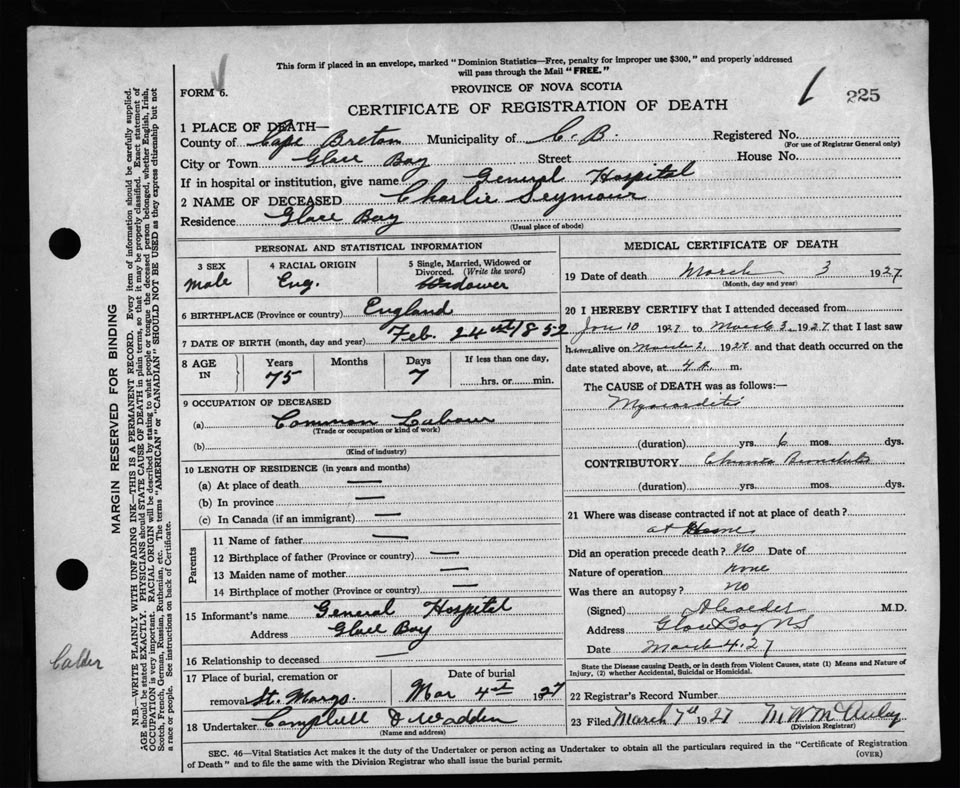 This form if placed in an envelope, marked "Dominion Statistics—Free, penalty for improper use $300," and properly addressed
will pass through the Mail "FREE."
FORM 6.
PROVINCE OF NOVA SCOTIA
CERTIFICATE OF REGISTRATION OF DEATH
225
1 PLACE OF DEATH—
County of Cape Breton Municipality of C. B. Registered No.
(For use of Registrar General only)
City or Town Glace Bay Street House No.
If in hospital or institution, give name General Hospital
2 NAME OF DECEASED Charlie Seymour
Residence Glace Bay
(Usual place of abode)
PERSONAL AND STATISTICAL INFORMATION
3 SEX
Male
4 RACIAL ORIGIN
Eng.
5 Single, Married, Widowed or
Divorced. (Write the word)
Widower
6 BIRTHPLACE (Province or country) England
7 DATE OF BIRTH (month, day and year) Feb. 24th 1852
8 AGE
IN
Years
75
Months
Days
7
If less than one day,
hrs. or min.
9 OCCUPATION OF DECEASED
(a) Common Labour
(Trade or occupation or kind of work)
(b)
(Kind of industry)
10 LENGTH OF RESIDENCE (in years and months)
(a) At place of death —
(b) In province —
(c) In Canada (if an immigrant) —
Parents
11 Name of father —
12 Birthplace of father (Province or country) —
13 Maiden name of mother —
14 Birthplace of mother (Province or country) —
15 Informant's name General Hospital
Address Glace Bay
16 Relationship to deceased —
17 Place of burial, cremation or Date of burial
removal St. Marys. Mar 4th 1927
18 Undertaker Campbell & Wadden
(Name and address)
MEDICAL CERTIFICATE OF DEATH
19 Date of death March 3 1927
(Month, day and year)
20 I HEREBY CERTIFY that I attended deceased from
Jan 10 1927 to March 3, 1927 that I last saw
him alive on March 2, 1927 and that death occurred on the
date stated above, at 4 a. m.
The CAUSE of DEATH was as follows:—
Myocarditis
(duration) yrs. 6 mos. dys.
CONTRIBUTORY Chronic Bronchitis
(duration) yrs. mos. dys.
21 Where was disease contracted if not at place of death?
at Home
Did an operation precede death? No Date of
Nature of operation none
Was there an autopsy? No
(Signed) M.D.
Address Glace Bay NS
Date March 4. 27
State the Disease causing Death, or in death from Violent Causes, state (1) Means and Nature of
Injury, (2) whether Accidental, Suicidal or Homicidal.
22 Registrar's Record Number
23 Filed March 7th 1927 M W McAuley
(Division Registrar)
SEC. 46—Vital Statistics Act makes it the duty of the Undertaker or person acting as Undertaker to obtain all the particulars required in the "Certificate of Registration
of Death" and to file the same with the Division Registrar who shall issue the burial permit.
(OVER)
MARGIN RESERVED FOR BINDING
N.B.—WRITE PLAINLY WITH UNFADING INK—THIS IS A PERMANENT RECORD. Every item of information should be carefully supplied.
AGE should be stated EXACTLY. PHYSICIANS should STATE CAUSE OF DEATH in plain terms, so that it may be properly classified. Exact statement of
OCCUPATION is very important. RACIAL ORIGIN will be described by stating to what people or tongue the deceased person belonged, whether English, Irish,
Scotch, French, German, Russian, Ruthenian, etc. The terms "AMERICAN" or "CANADIAN" SHOULD NOT BE USED as they express citizenship but not
a race or people. See instructions on back of Certificate.
Calder